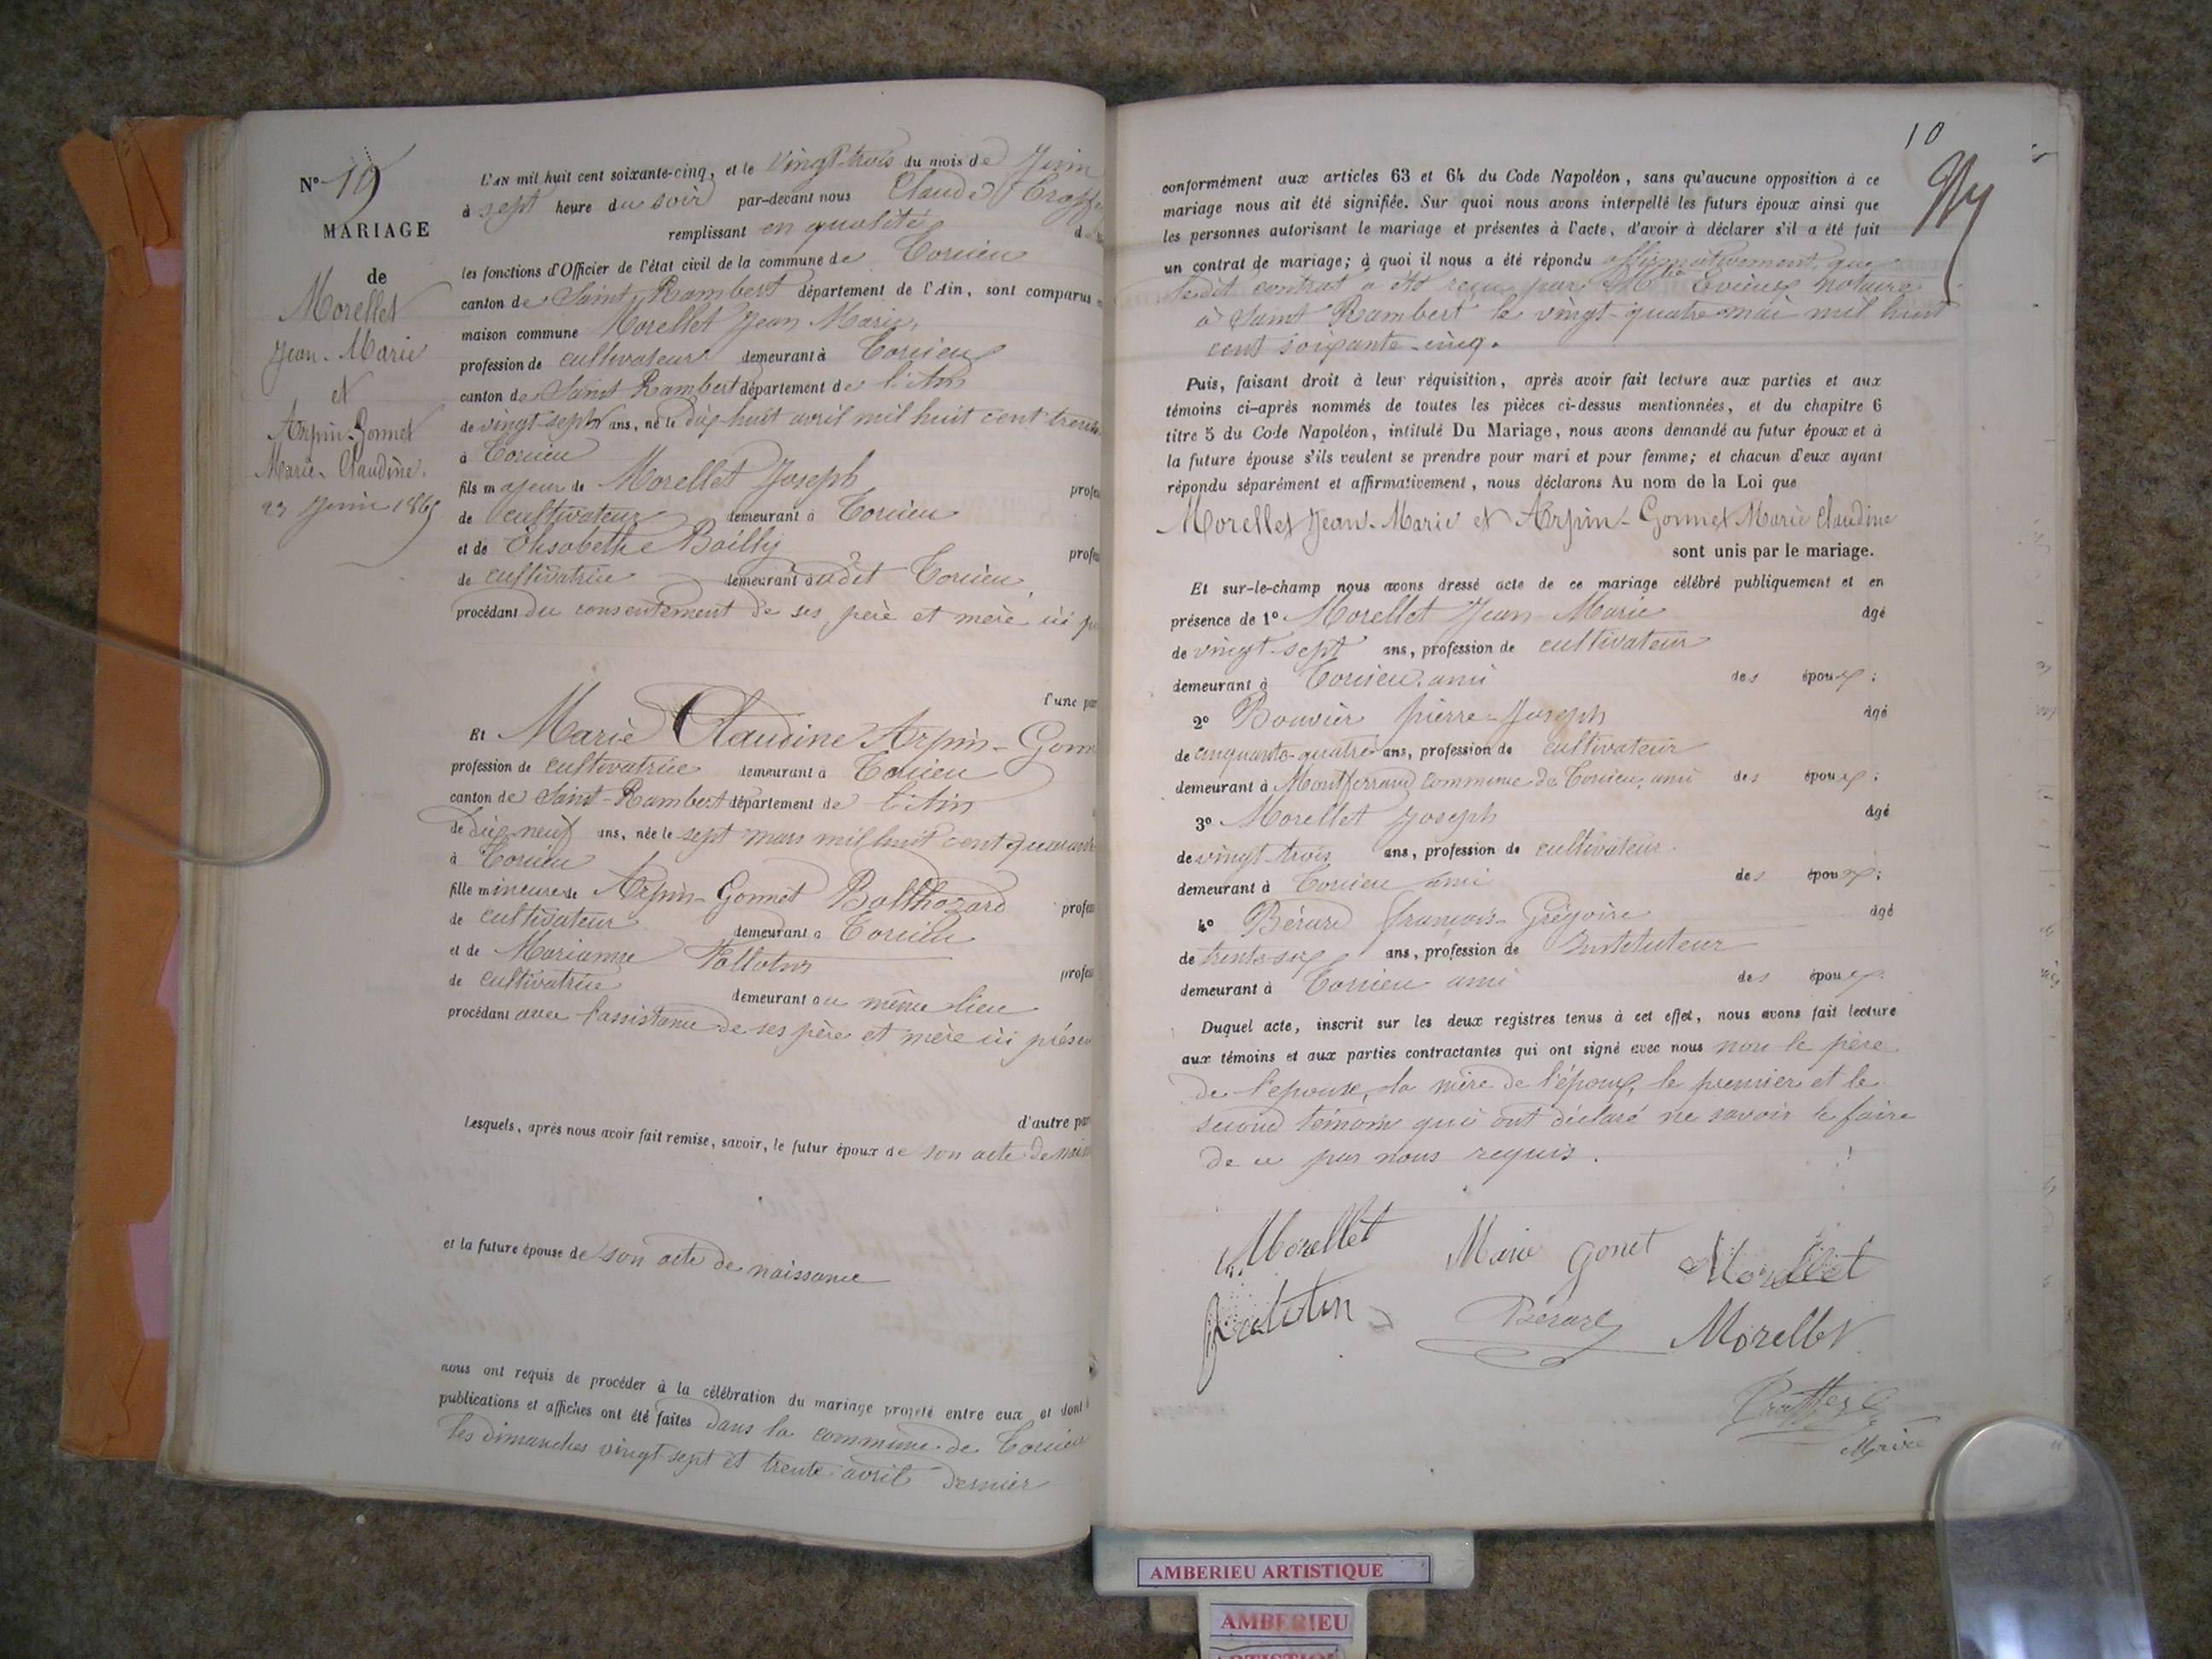 N° 19
MARIAGE
de
Morellet
Jean-Marie
et
Arpin-Gonnet
Marie-Claudine.
23 Juin 1865
L'AN mil huit cent soixante-cinq, et le vingt-trois du mois de Juin
à sept heure du soir par-devant nous Claude
remplissant en qualité de
les fonctions d'Officier de l'état civil de la commune de Torcieu
canton de Saint Rambert département de l'Ain, sont comparus
maison commune Morellet Jean Marie,
profession de cultivateur demeurant à Torcieu
canton de Saint Rambert département de l'Ain
de vingt-sept ans, né le dix-huit avril mil huit cent trente
à Torcieu
fils majeur de Morellet Joseph profes
de cultivateur demeurant à Torcieu
et de Elisabethe Bailly profes
de cultivatrice demeurant audit Torcieu,
procédant du consentement de ses père et mère ici
l'une par
Et Marie Claudine Arpin-Gonn
profession de cultivatrice demeurant à Torcieu
canton de Saint-Rambert département de l'Ain
de dix-neuf ans, née le sept mars mil huit cent quarante
à Torcieu
fille mineure de Arpin-Gonnet Balthazard profes
de cultivateur demeurant à Torcieu
et de Marianne profes
de cultivatrice demeurant au même lieu
procédant avec l'assistance de ses père et mère ici présen
d'autre par
Lesquels, après nous avoir fait remise, savoir, le futur époux de son acte de nais
et la future épouse de son acte de naissance
nous ont requis de procéder à la célébration du mariage projeté entre eux et dont
publications et affiches ont été faites dans la commune de Torcieu
les dimanches vingt-sept et trente avril dernier
10
conformément aux articles 63 et 64 du Code Napoléon, sans qu'aucune opposition à ce
mariage nous ait été signifiée. Sur quoi nous avons interpellé les futurs époux ainsi que
les personnes autorisant le mariage et présentes à l'acte, d'avoir à déclarer s'il a été fait
un contrat de mariage; à quoi il nous a été répondu affirmativement, que
ledit contrat a été reçu par notaire
à Saint Rambert le vingt-quatre mai mil huit
cent soixante-cinq.
Puis, faisant droit à leur réquisition, après avoir fait lecture aux parties et aux
témoins ci-après nommés de toutes les pièces ci-dessus mentionnées, et du chapitre 6
titre 5 du Code Napoléon, intitulé Du Mariage, nous avons demandé au futur époux et à
la future épouse s'ils veulent se prendre pour mari et pour femme; et chacun d'eux ayant
répondu séparément et affirmativement, nous déclarons Au nom de la Loi que
Morellet Jean-Marie et Arpin-Gonnet Marie Claudine
sont unis par le mariage.
Et sur-le-champ nous avons dressé acte de ce mariage célébré publiquement et en
présence de 1° Morellet Jean Marie âgé
de vingt-sept ans, profession de cultivateur
demeurant à Torcieu, ami des époux;
2° Bouvier pierre-Joseph âgé
de cinquante-quatre ans, profession de cultivateur
demeurant à Montferrand commune de Torcieu, ami des époux;
3° Morellet Joseph âgé
de vingt-trois ans, profession de cultivateur
demeurant à Torcieu ami des époux;
4° Bérard françois-Grégoire âgé
de trente-six ans, profession de Instituteur
demeurant à Torcieu ami des époux.
Duquel acte, inscrit sur les deux registres tenus à cet effet, nous avons fait lecture
aux témoins et aux parties contractantes qui ont signé avec nous non le père
de l'épouse, la mère de l'époux, le premier et le
second témoin qui ont déclaré ne savoir le faire
de ce par nous requis.
Morellet Marie Gonet Morellet
Bérard Morellet
Maire
AMBERIEU ARTISTIQUE
AMBERIEU
ARTISTIQUE